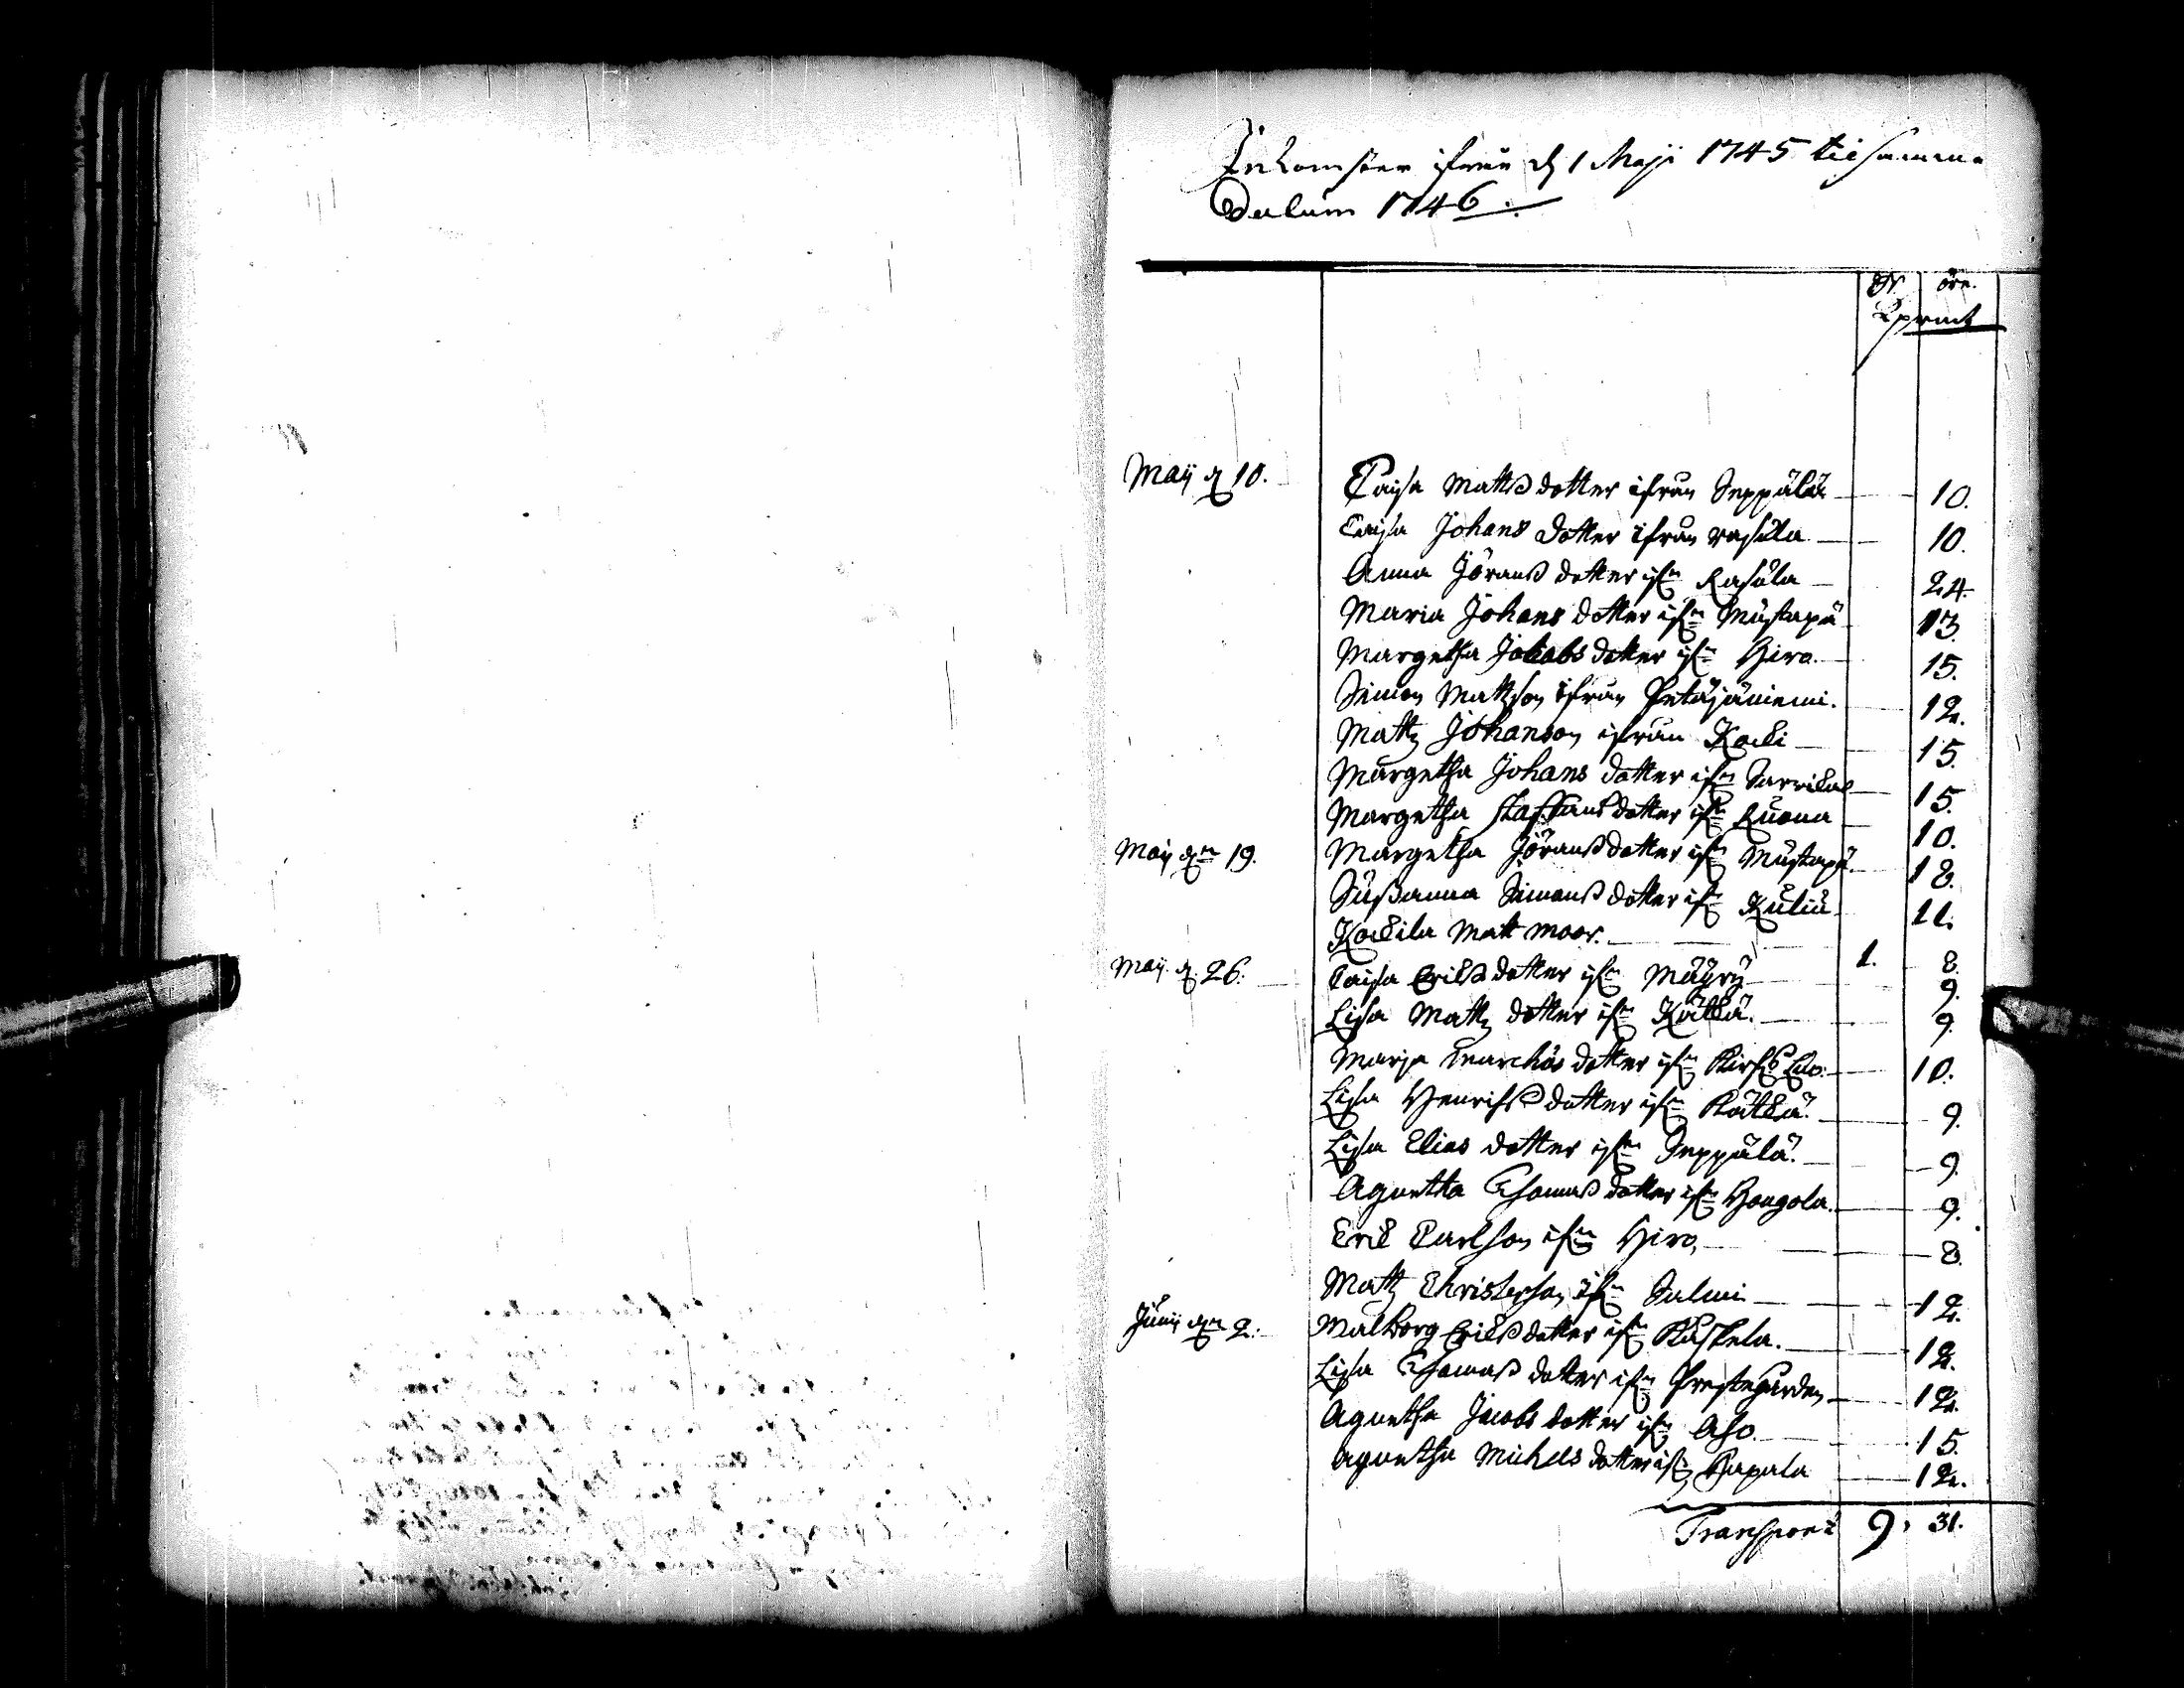 Inkomster ifrån d 1 Maji 1745 til samma
Datum 1746.
dr öre.
Kprmt
Maij d 10. Caisa Mattsdotter ifrån Seppälä 10.
Caisa Johans dotter ifrån Rasula 10.
Anna Jöransdotter ifn Rasula 24.
Maria Johans dotter ifn Mustapä 13.
Margetha Jakobs dotter ifn Hiro. 15.
Simon Mattson ifrån Petäjäniemi. 12.
Matts Johanson ifrån Kocki 15.
Margetha Johans dotter ifn 15.
Margetha Staffansdotter ifn Ruona 10.
Maij den 19. Margetha Jöransdotter ifn Mustapä. 18.
Susanna Simonsdotter ifn Kuliu 11.
Kockila Matt moor. 1. 8.
Maij d. 26. Caisa Ericksdotter ifn Mäyry 9.
Lisa Matts dotter ifn Kätkä. 9.
Marja Marchus dotter ifn 10.
Lisa Henrichsdotter ifn Kätkä. 9.
Lisa Elias dotter ifn Seppälä. 9.
Agnetha Thomasdotter ifn Hongola. 9.
Erik Carlson ifn Hiro. 8.
Matts Christerson ifn Salmi 12.
Junij den 2. Malborg Ericksdotter ifn Kaskela. 12.
Lisa Thomasdotter ifn Prestegården 12.
Agnetha Jacobs dotter ifn Aho. 15.
Agnetha Michels dotter ifn Papala 12.
Transport 9. 31.